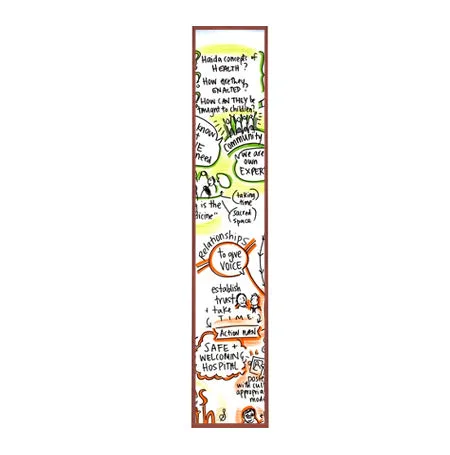 Haida concepts of
HEALTH?
HOW are they
ENACTED?
HOW CAN THEY be
taught to children?
know
community
need
we are
own
EXPER
(taking
time)
is the
dicine"
(sacred
space)
Relationships
to give
VOICE
establish
trust
+ take
TIME
ACTION PLAN
SAFE +
WELCOMING
HOSPITAL
poste
with cul
appropria
mode